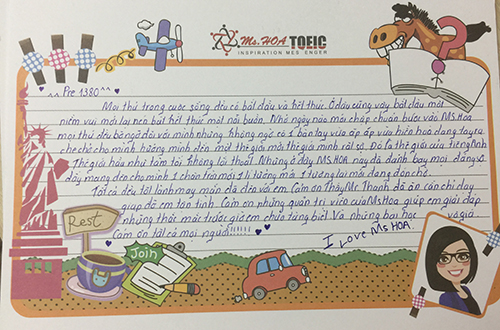 Ms.HOA TOEIC
INSPIRATION MESSENGER
^^ Pre 1380 ^^
Mọi thứ trong cuộc sống đều có bắt đầu và kết thúc. Ở đâu cũng vậy bắt đầu mới
niềm vui mới lại nên bắt kết thúc một nỗi buồn. Nhớ ngày nào mới chập chuẩn bước vào MS.Hoa
mọi thứ đều bỡ ngỡ đối với mình nhưng không ngờ có 1 bàn tay vừa ấp ấp vừa hiền hòa đang tay ra
che chở cho mình hướng mình đến một thế giới mà thế giới mình rất sợ. Đó là thế giới của tiếng Anh
Thế giới hóa như tấm tối không lối thoát. Nhưng ở đây MS.HOA này đã đánh bay mọi đáng sợ
đây mang đến cho mình 1 chân trời mới 1 lí tưởng mới 1 tương lai mới đang đón chờ.
Tất cả đều tốt lành may mắn đã đến với em. Cảm ơn Thầy Mr Thanh đã ân cần chỉ dạy
giúp đỡ em tận tình. Cảm ơn những quản trị viên của MsHoa giúp em giải đáp
những thắc mắc trước giờ em chưa từng biết. Và những bài học và giá
Cảm ơn tất cả mọi người!!!!!
I Love Ms HOA.
Rest
Join